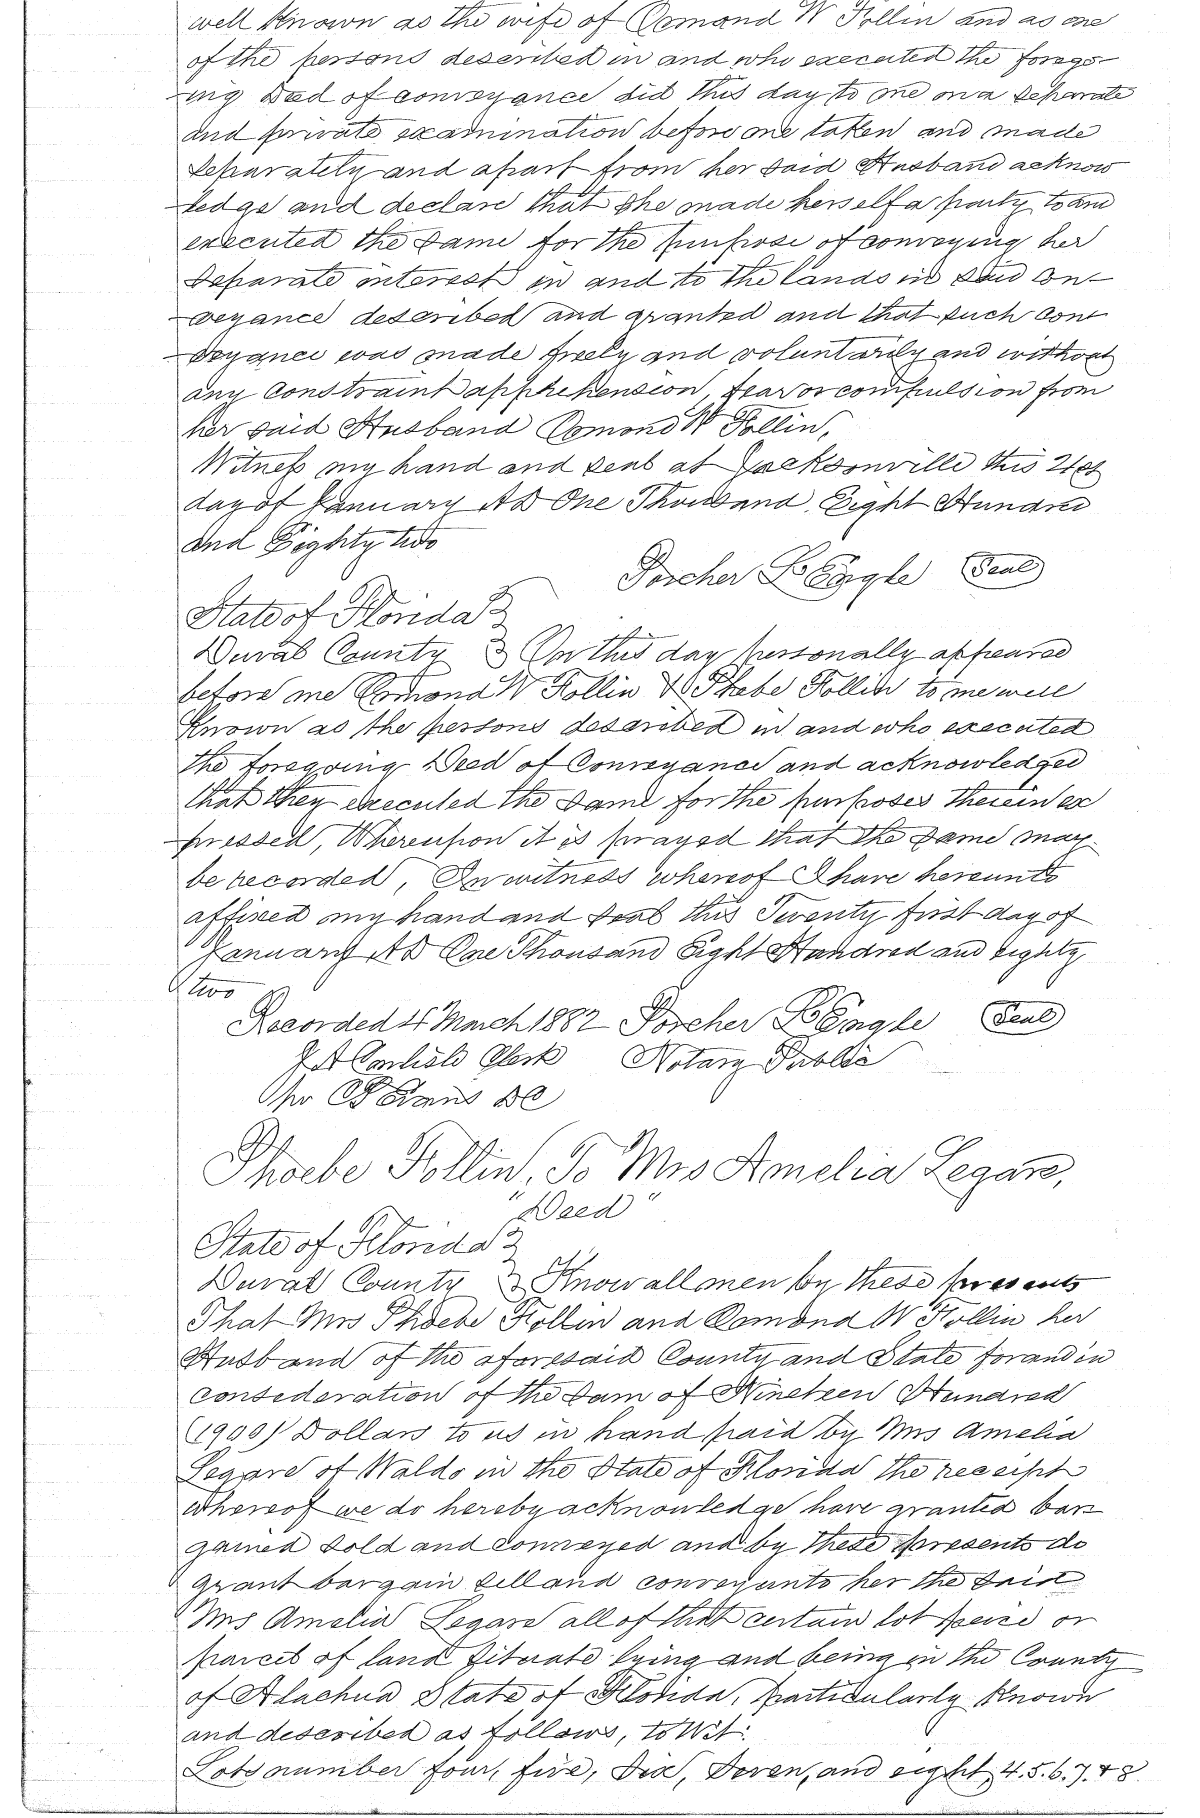 well Known as the wife of Osmond W Follin and as one
of the persons described in and who executed the forego-
ing Deed of conveyance did this day to me on a separate
and private examination before me taken and made
separately and apart from her said Husband acknow
ledge and declare that she made herself a party to and
executed the same for the purpose of conveying her
separate interest in and to the lands in said con-
veyance described and granted and that such con
veyance was made freely and voluntarily and without
any constraint apprehension, fear or compulsion from
her said Husband Osmond W Follin,
Witness my hand and seal at Jacksonville this 21st
day of January AD One Thousand Eight Hundred
and Eighty two
Porcher L'Engle Seal
State of Florida
Duval County On this day personally appeared
before me Osmond W Follin & Phebe Follin to me well
Known as the persons described in and who executed
the foregoing Deed of Conveyance and acknowledged
that they executed the same for the purposes therein ex
pressed, Whereupon it is prayed that the same may
be recorded, In witness whereof I have hereunto
affixed my hand and seal this Twenty first day of
January AD One Thousand Eight Hundred and eighty
two
Recorded 4 March 1882 Porcher L'Engle Seal
J A Carlisle Clerk Notary Public
pr DC
Phoebe Follin, To Mrs Amelia Legare,
"Deed"
State of Florida
Duval County Know all men by these presents
That Mrs Phoebe Follin and Osmond W Follin her
Husband of the aforesaid County and State for and in
consideration of the sum of Nineteen Hundred
(1900) Dollars to us in hand paid by Mrs Amelia
Legare of Waldo in the State of Florida the receipt
whereof we do hereby acknowledge have granted bar
gained sold and conveyed and by these presents do
grant bargain sell and convey unto her the said
Mrs Amelia Legare all of that certain lot peice or
parcel of land situate lying and being in the County
of Alachua State of Florida, particularly Known
and described as follows, to Wit:
Lots number four, five, Six, Seven, and eight, 4.5.6.7.+8